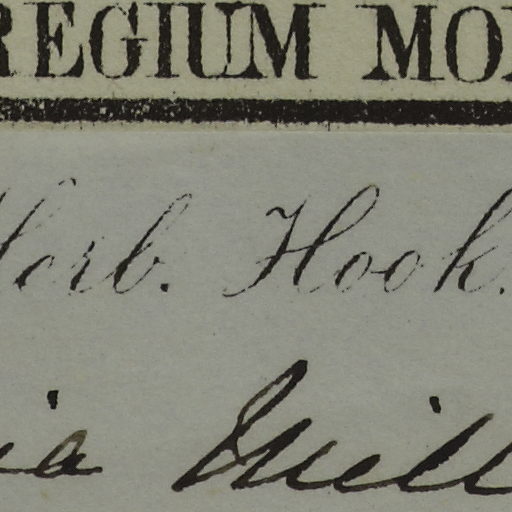 REGIUM MO
Herb. Hook.
ia Mill